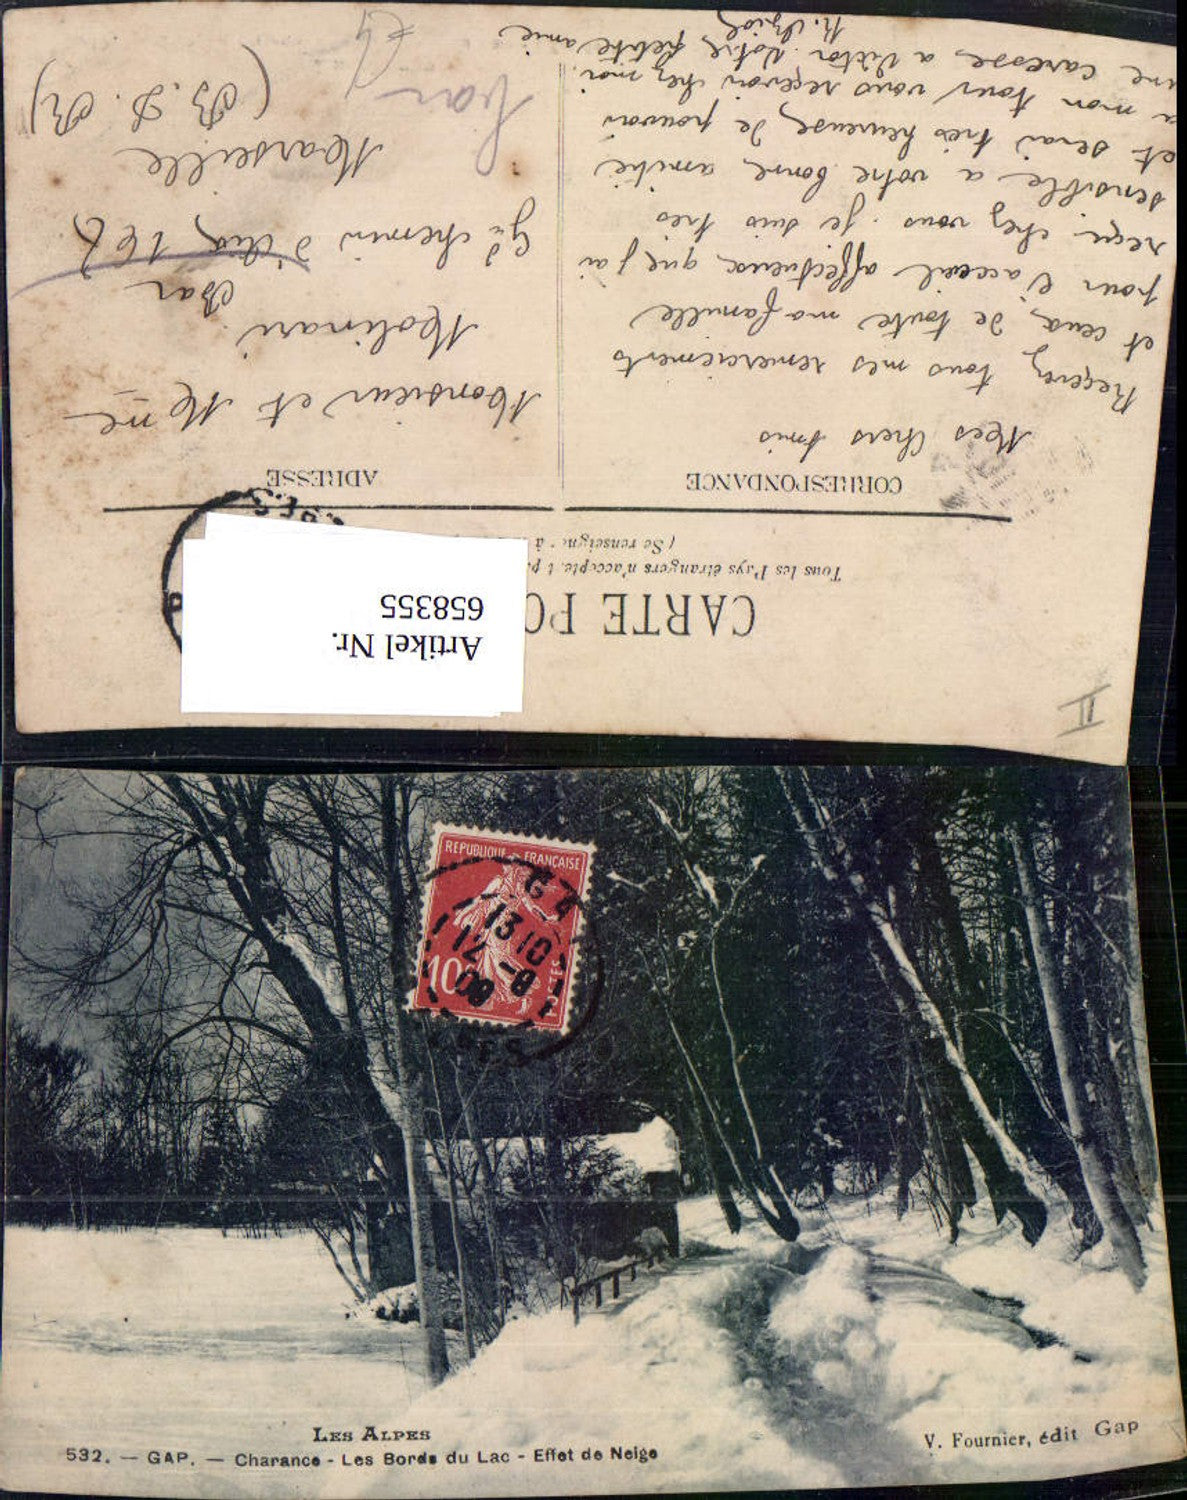 CARTE PO
Tous les Pays étrangers n'acceptent p
(Se renseigner à
CORRESPONDANCE
ADRESSE
Artikel Nr.
658355
Mes Chers Amis
Recevez tous mes remerciements
et ceux de toute ma famille
pour l'acceuil affectueux que j'ai
reçu chez vous. je suis très
sensible a votre bonne amitié
et serai très heureuse de pouvoir
a mon tour vous recevoir chez moi.
une caresse a Victor. Votre petite amie
Monsieur et Mme
Molinari
Bar
Gd chemin d'Aix, 167
Marseille
(B. D. R)
II
REPUBLIQUE FRANÇAISE
10
13 10
12 - 8
08
LES ALPES
532. — GAP. — Charance - Les Bords du Lac - Effet de Neige
V. Fournier, édit Gap